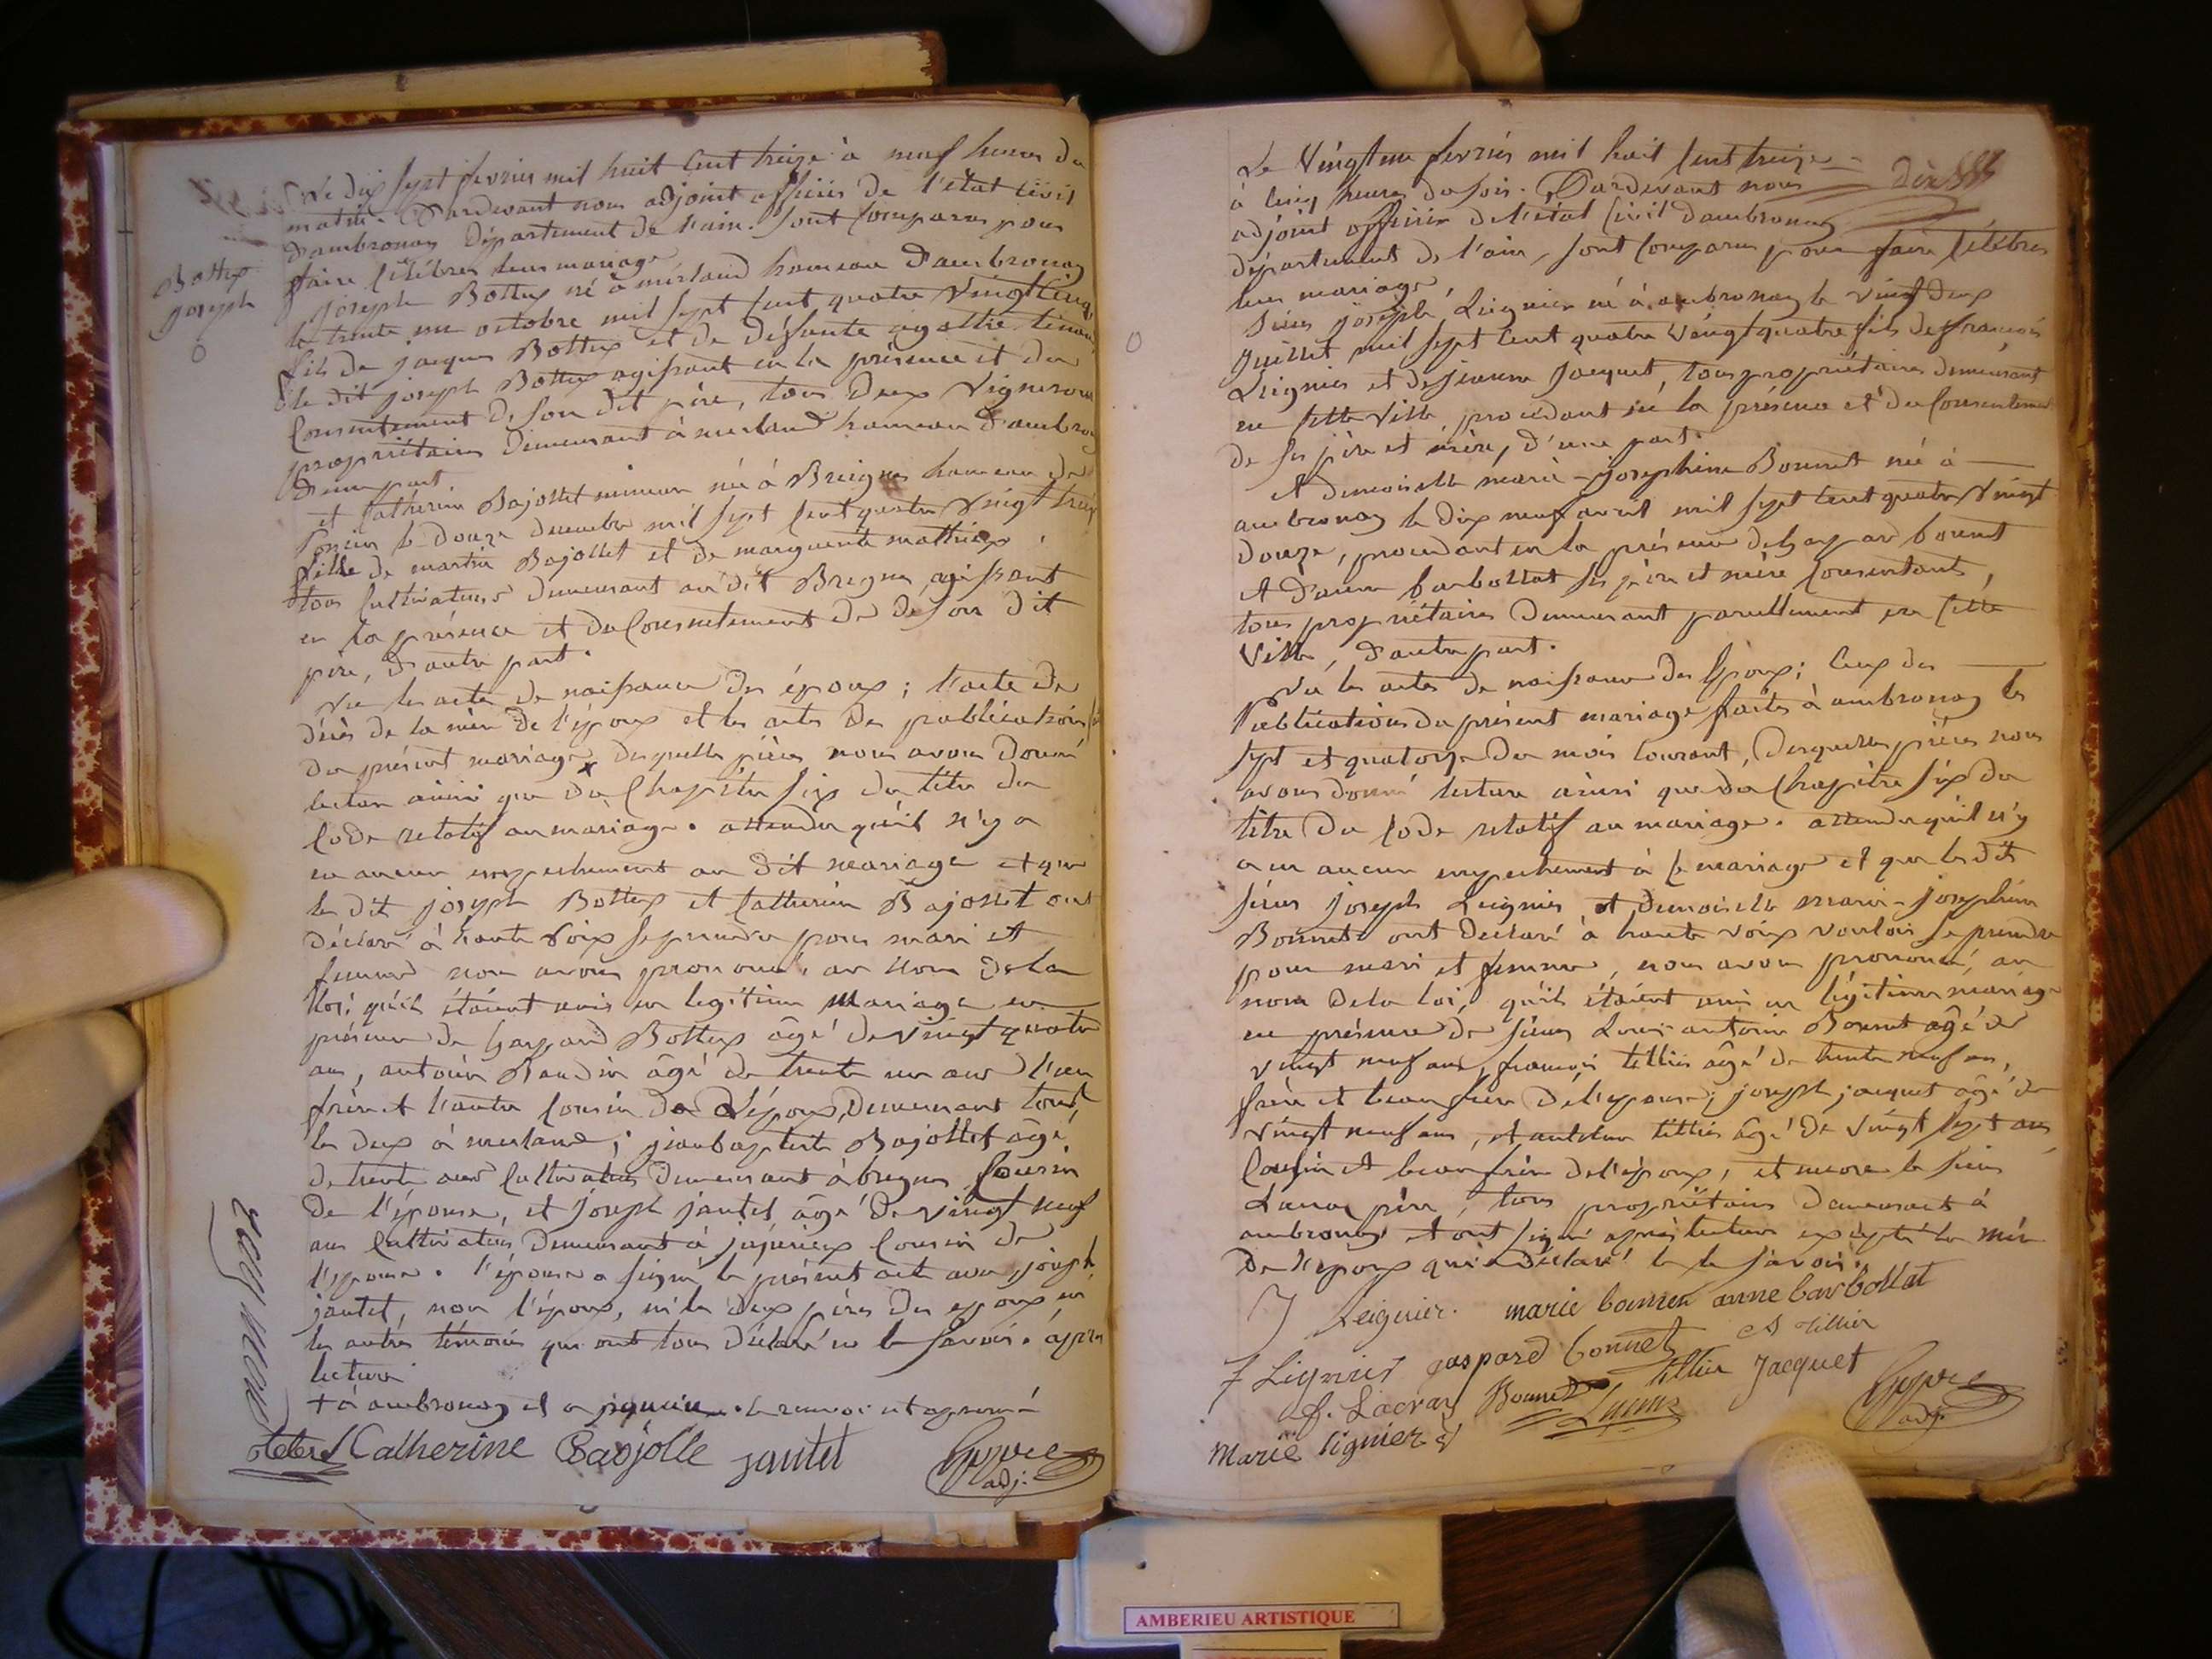 Le dix sept fevrier mil huit cent treize à neuf heures du
matin. Pardevant nous adjoint officier de l'état civil
d'ambronay département de l'ain. sont comparus pour
faire célébrer leur mariage
Bottex
joseph
joseph Bottex né à merland hameau d'ambronay
le trente un octobre mil sept cent quatre vingt cinq
fils de jacques Bottex et de défunte agathe
le dit joseph Bottex agissant en la présence et du
consentement de son dit père, tous deux vignerons
propriétaires demeurant à merland hameau d'ambronay
d'une part.
et catherine Bajollet mineure née à Breignes hameau de
Poncin le douze decembre mil sept cent quatre vingt treize
fille de martin Bajollet et de marguerite mathieux
tous cultivateurs demeurant au dit Bregnes agissant
en la présence et du consentement de de son dit
père, d'autre part.
Vu les actes de naissance des époux ; l'acte de
décès de la mère de l'époux et les actes des publications
du présent mariage + desquelles pièces nous avons donné
lecture ainsi que du chapitre six du titre du
code relatif au mariage. attendu qu'il n'y a
eu aucun empechement au dit mariage et que
les dit joseph Bottex et catherine Bajollet ont
déclaré à haute voix se prendre pour mari et
femme nous avons prononcé, au nom de la
loi qu'ils étoient unis en legitime mariage en
présence de gaspard Bottex âgé de vingt quatre
ans, antoine Baudin âgé de trente un ans l'un
frère et l'autre cousin de l'époux, demeurant tous
les deux à merland ; jeanbaptiste Bajollet âgé
de trente ans cultivateur demeurant à bregnes cousin
de l'épouse, et joseph jantet âgé de vingt neuf
ans cultivateur demeurant à jujurieux cousin de
l'épouse. l'épouse a signé le présent acte avec joseph
jantet, non l'époux, ni les deux pères des epoux ni
les autres témoins qui ont tous déclaré ne le savoir. après
lecture
+ à ambronay et a . le renvoi est approuvé
Catherine Bajolle jantet
adj.
Le Vingt un fevrier mil huit cent treize
à cinq heures du soir. Pardevant nous
adjoint officier de l'état civil d'ambronay
département de l'ain, sont comparus pour faire célébrer
leur mariage,
Sieur joseph Leignier né à ambronay le vingt deux
juillet mil sept cent quatre vingt quatre fils de françois
Leignier et de jeanne jacquet, tous propriétaires demeurant
en cette ville, procédant en la présence et du consentement
de ses père et mère, d'une part.
Et demoiselle marie-josephine Bonnet née à
ambronay le dix neuf avril mil sept cent quatre vingt
douze, procédant en la présence de gaspard bonnet
et d'anne barbollat ses père et mère consentants,
tous propriétaires demeurant pareillement en cette
ville, d'autre part.
Vu les actes de naissance des époux ; ceux des
Publications du présent mariage faites à ambronay les
sept et quatorze du mois courant, desquelles pièces nous
avons donné lecture ainsi que du chapitre six du
titre du code relatif au mariage. attendu qu'il n'y
a eu aucun empechement à ce mariage et que les dit
sieur joseph Leignier et demoiselle marie-josephine
Bonnet ont déclaré à haute voix vouloir se prendre
pour mari et femme, nous avons prononcé, au
nom de la loi, qu'ils étoient unis en légitime mariage
en présence de sieur Louis antoine Bonnet âgé de
vingt neuf ans, françois tillier âgé de trente neuf ans,
frère et beau frère de l'epouse ; joseph jacquet âgé de
vingt neuf ans, et tillier âgé de vingt sept ans
cousin et beaufrère de l'époux, et encore le sieur
père, tous propriétaires demeurant à
ambronay et ont signé après lecture excepté la mère
de l'epoux qui a déclaré ne le savoir.
J Leignier. marie bonnet anne barbollat
f Lignier gaspard bonnet A tillier
f. Lacray Bonnet tillier Jacquet
Marie lignier
adj.
AMBERIEU ARTISTIQUE